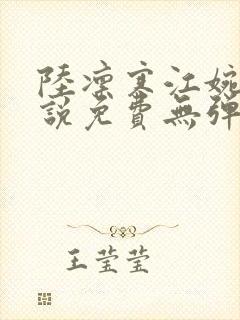 陸凜寒江婉
說免費無彈
王瑩瑩